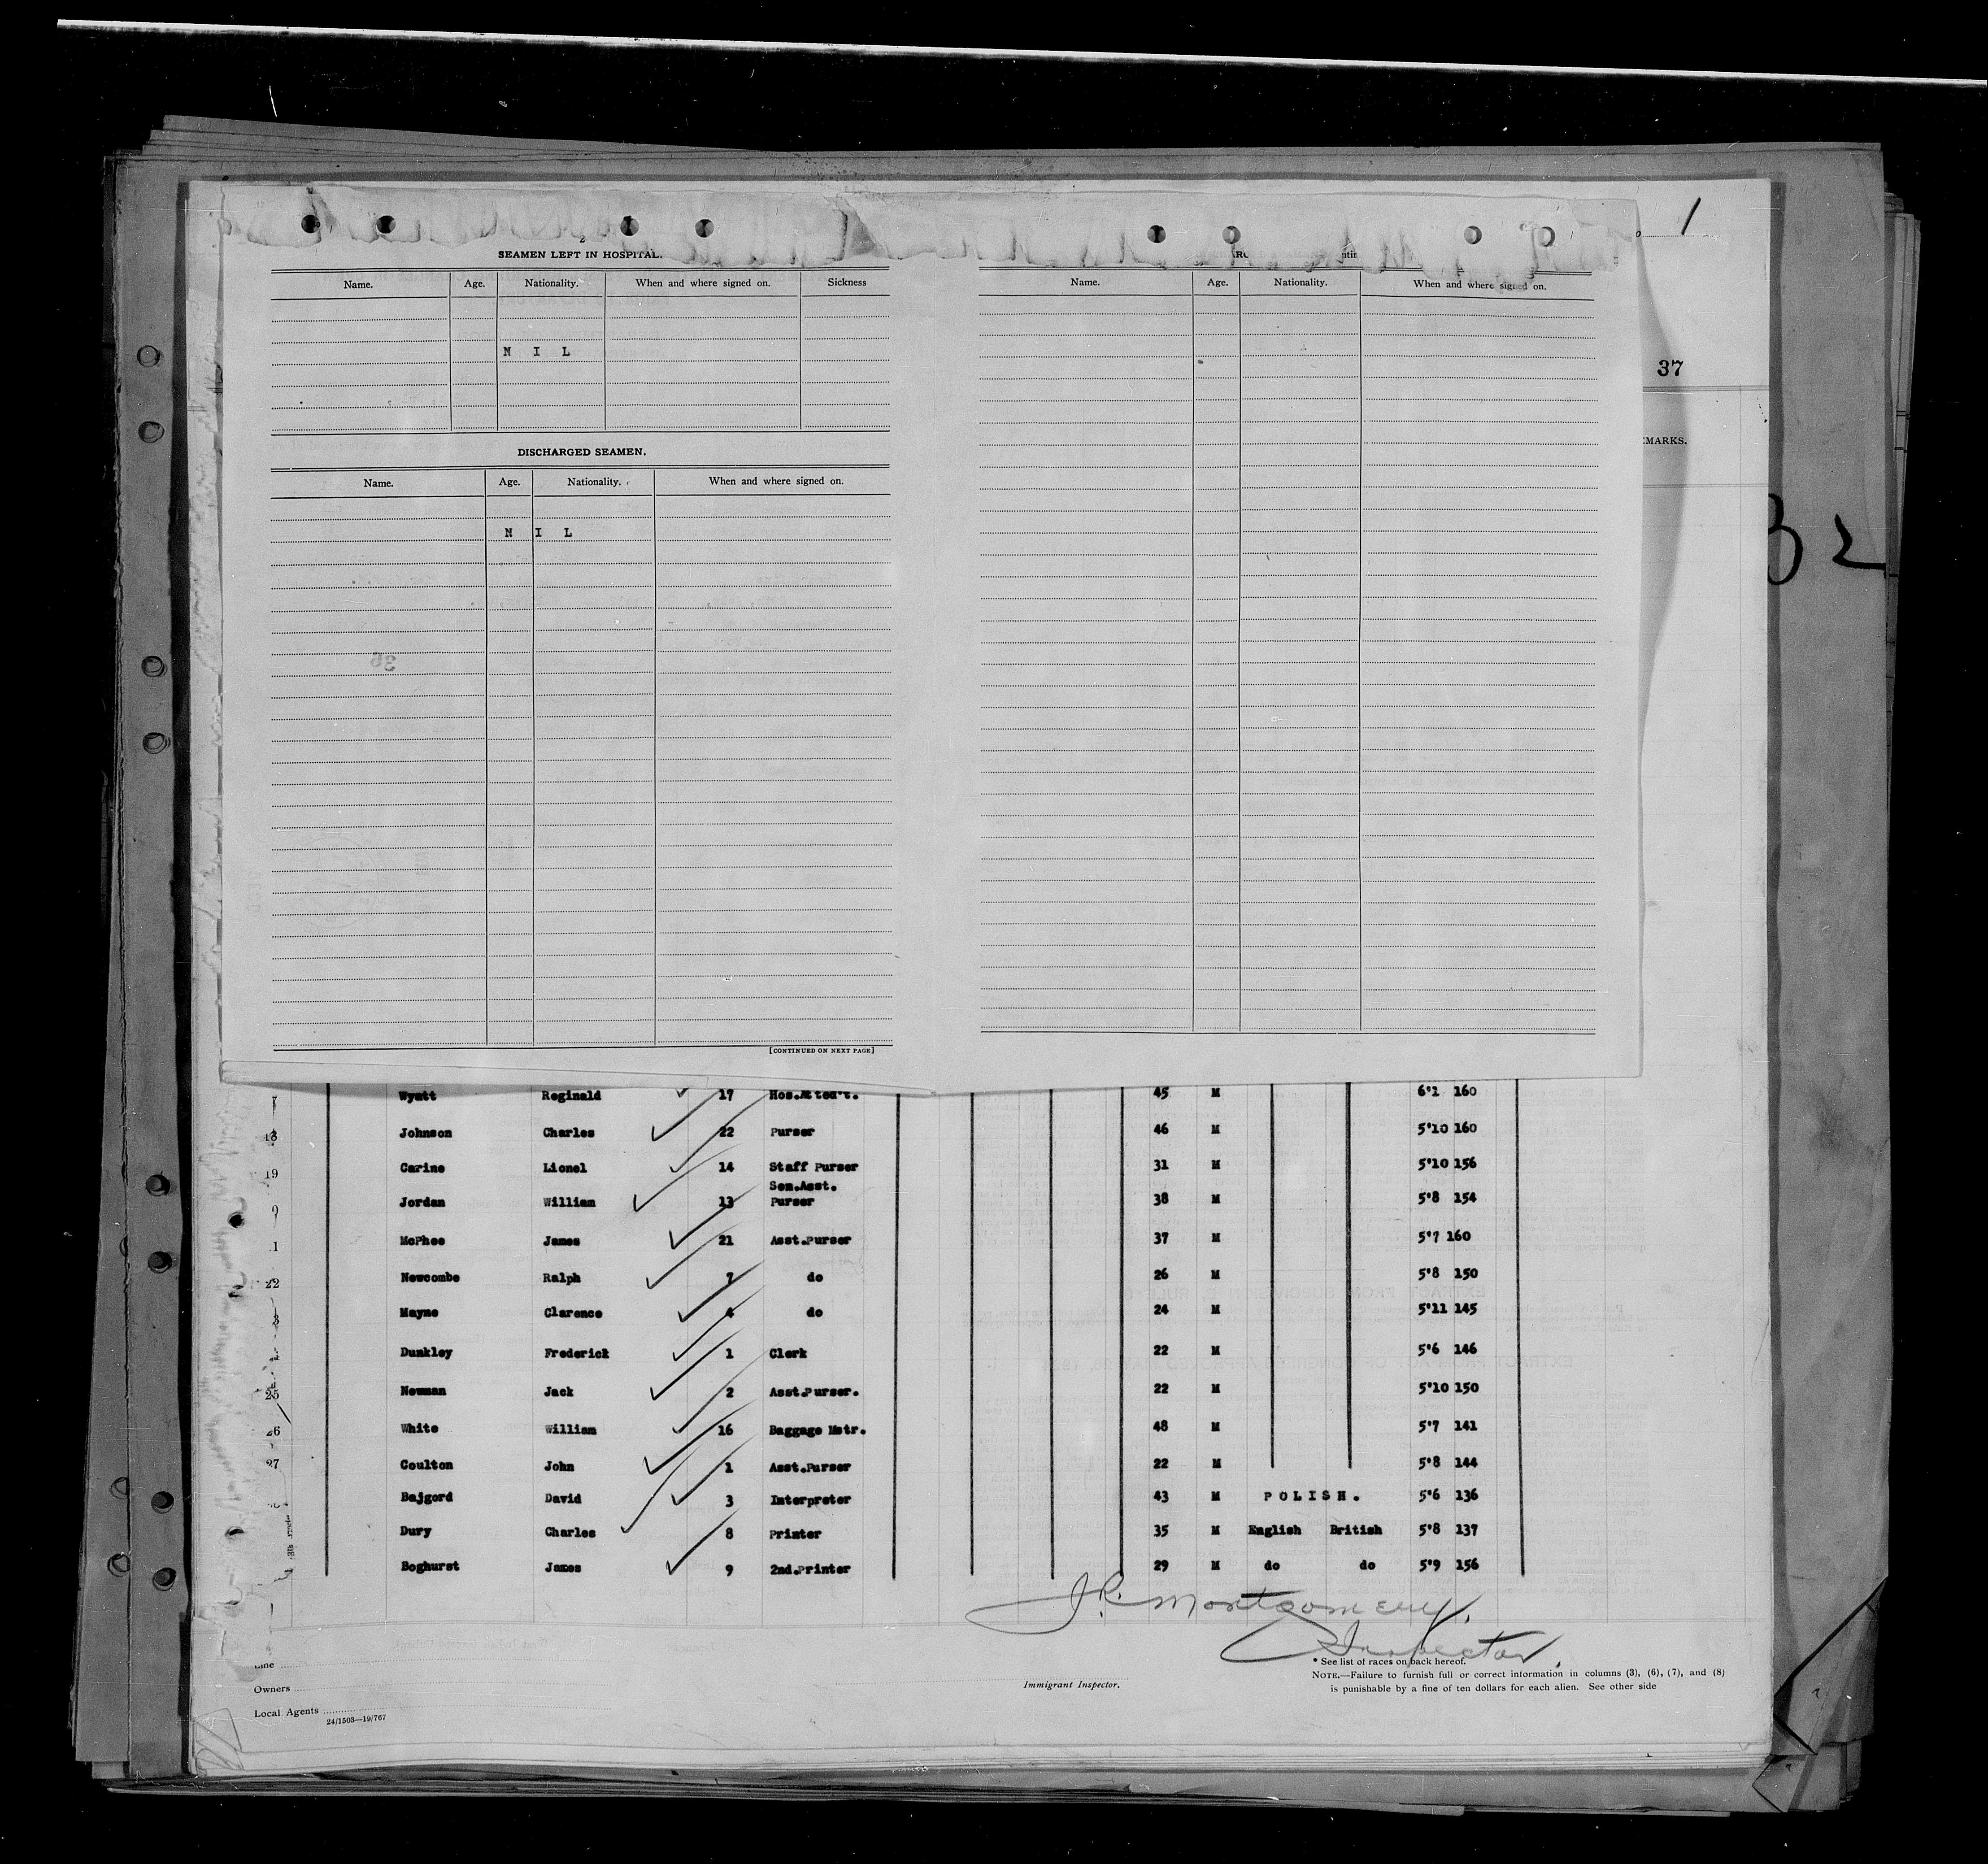 1
2
SEAMEN LEFT IN HOSPITAL.
Name. Age. Nationality. When and where signed on. Sickness
N I L
DISCHARGED SEAMEN.
Name. Age. Nationality. When and where signed on.
N I L
36
[CONTINUED ON NEXT PAGE]
Name. Age. Nationality. When and where signed on.
37
EMARKS.
32
Wyatt Reginald 17 Hos.Attend't. 45 M 6'1 160
18 Johnson Charles 22 Purser 46 M 5'10 160
19 Carine Lionel 14 Staff Purser 31 M 5'10 156
Sen.Asst.
Jordan William 13 Purser 38 M 5'8 154
1 McPhee James 21 Asst.Purser 37 M 5'7 160
22 Newcombe Ralph 7 do 26 M 5'8 150
3 Mayne Clarence 4 do 24 M 5'11 145
Dunkley Frederick 1 Clerk 22 M 5'6 146
25 Newman Jack 2 Asst.Purser. 22 M 5'10 150
26 White William 16 Baggage Mstr. 48 M 5'7 141
27 Coulton John 1 Asst.Purser 22 M 5'8 144
Bajgord David 3 Interpreter 43 M POLISH. 5'6 136
Dury Charles 8 Printer 35 M English British 5'8 137
Boghurst James 9 2nd.Printer 29 M do do 5'9 156
J.R. Montgomery.
Inspector.
Line
Owners
Local Agents
24/1503—19/767
Immigrant Inspector.
* See list of races on back hereof.
NOTE.—Failure to furnish full or correct information in columns (3), (6), (7), and (8)
is punishable by a fine of ten dollars for each alien. See other side